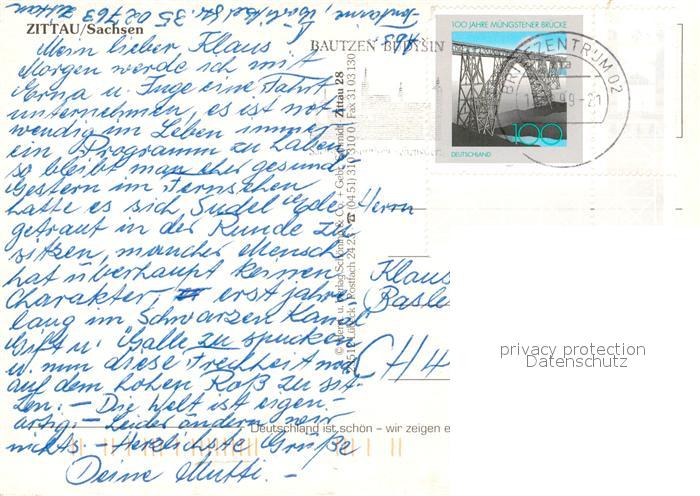 ZITTAU/Sachsen
Mein lieber Klaus!
Morgen werde ich mit
Erna u. Inge eine Fahrt
unternehmen, es ist not-
wendig im Leben immer
ein Programm zu haben
so bleibt man eher gesund
Gestern im Fernsehen
hatte es sich, Sudel Ede
getraut in der Runde zu
sitzen, mancher Mensch
hat überhaupt keinen
Charakter, erst jahre
lang im Schwarzen Kanal
Gift u. Galle zu spucken
u. nun diese Frechheit
auf dem hohen Roß zu sit-
zen. – Die Welt ist eigen-
artig. – Leider ändern wir
nichts. – Herzlichste Grüße
Deine Mutti. –
35 02 763
BAUTZEN BUDYŠIN
100 JAHRE MÜNGSTENER BRÜCKE
100
DEUTSCHLAND
BRIEFZENTRUM 02
99-21
Zittau 28
Herrn
Klaus
Basle
CH 4
Deutschland ist schön – wir zeigen e
privacy protection
Datenschutz